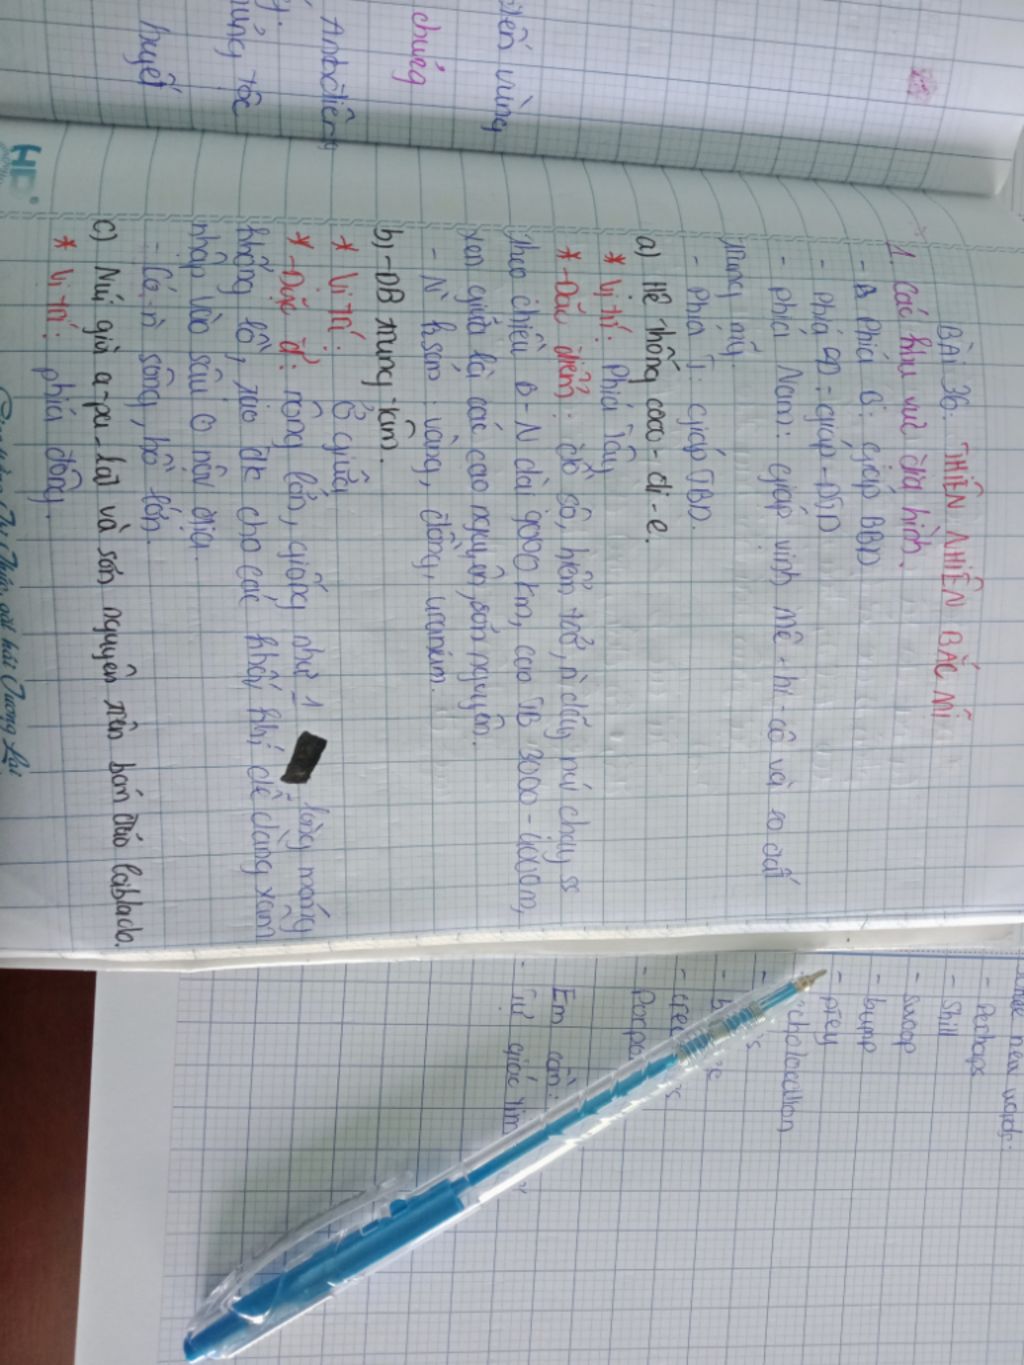 BÀI 36: THIÊN NHIÊN BẮC MĨ
1. Các khu vực địa hình.
- Phía B: giáp BBD
- Phía Đ: giáp ĐTD
- phía Nam: giáp vịnh Mê-hi-cô và eo đất
trung mỹ.
- Phía T: giáp TBD.
a) Hệ thống cooc-di-e.
* Vị trí: Phía Tây
* Đặc điểm: đồ sộ, hiểm trở, n dãy núi chạy ss
theo chiều B-N dài 9000km, cao TB 3000-4000m,
xen giữa là các cao nguyên, sơn nguyên.
- N k.sản: vàng, đồng, uranium.
b) ĐB trung tâm.
* Vị trí: ở giữa
* Đặc đ: rộng lớn, giống như 1 lòng máng
khổng lồ, tạo đk cho các khối khí dễ dàng xâm
nhập vào sâu nội địa.
- Có n sông, hồ lớn.
c) Núi già a-pa-lat và sơn nguyên trên bán đảo labrado.
* Vị trí: phía đông.
HD
Tương Lai
điển vùng
chúng
vùng tộc
huyết
new words:
- Perhaps
- Skill
- swoop
- bump
- prey
- echolocation
Em cần:
- Tự giác tìm